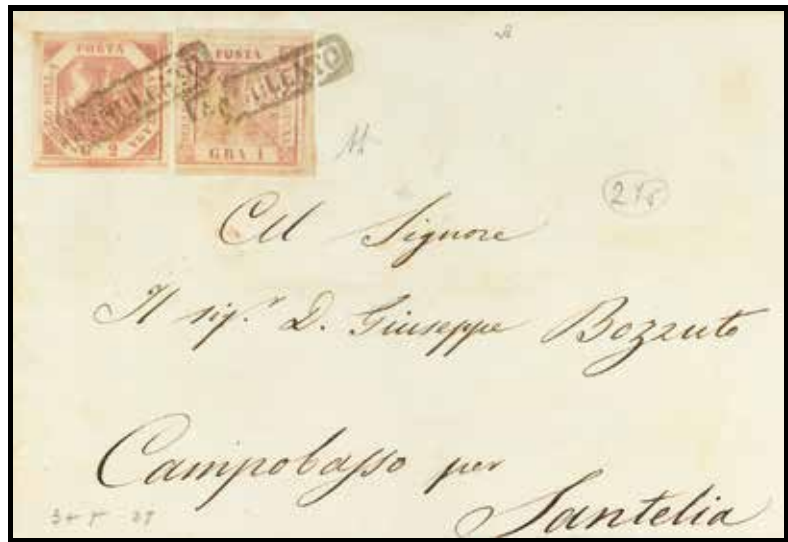 POSTA POSTA
ANNULLATO ANNULLATO
G. 2 GRA 1
Al Signore
Il sig.r D. Giuseppe Bozzuto
Campobasso per
Santelia